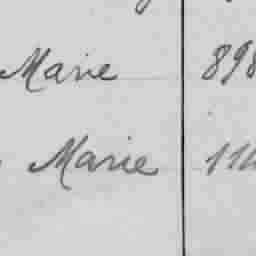 Marie 898
Marie